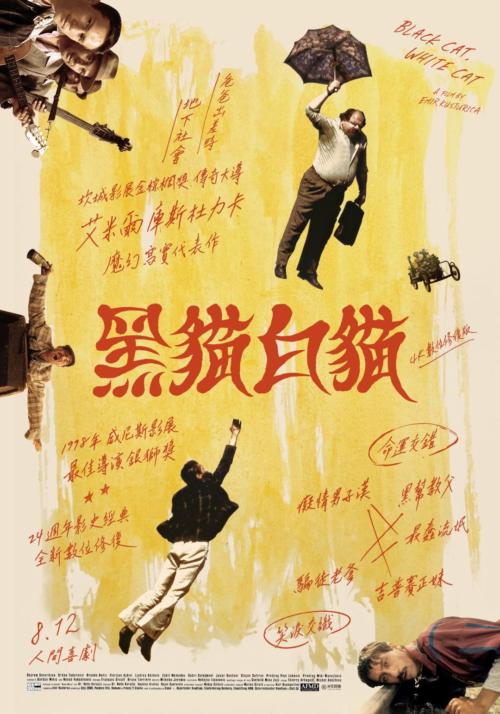 BLACK CAT,
WHITE CAT
A FILM BY
EMIR KUSTURICA
爸爸出差時
地下社會
坎城影展金棕櫚獎 傳奇大導
艾米爾庫斯杜力卡
魔幻寫實代表作
黑貓白貓
4K數位修復版
1998年 威尼斯影展
最佳導演銀獅獎
24週年影史經典
全新數位修復
命運交錯
癡情男子漢
黑幫教父
最蠢流氓
騙徒老爹
吉普賽正妹
笑淚交織
8.12
人間喜劇